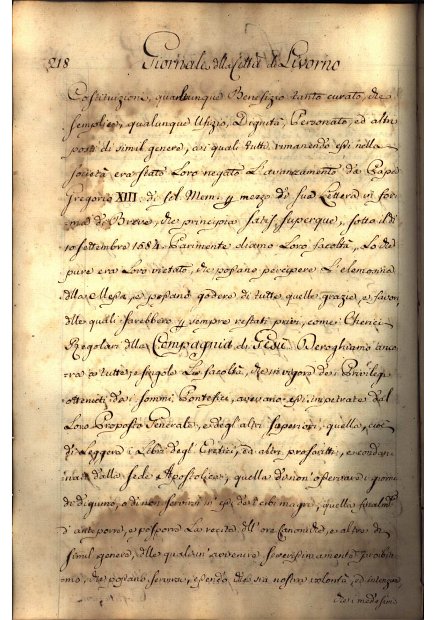 218 Giornale della Città di Livorno
Costituzione, qualunque Benefizio tanto curato, che
semplice, qualunque Ufizio, Dignità, Personato, ed altri
posti di simil genere, ai quali tutti rimanendo essi nella
società era stato Loro negato l'avanzamento da Papa
Gregorio XIII di fel. Mem. p mezzo di sua Lettera in for
ma di Breve, che principia Satis, superque, sotto il dì
10 settembre 1584. Parimente diamo Loro facoltà, lo che
pure era Loro vietato, che possano percipere l'elemosina
della Messa, e possano godere di tutte quelle grazie, e favori
delle quali sarebbero p sempre restati privi, come Cherici
Regolari della Compagnia di Gesù. Deroghiamo anco
ra a tutte, e singole le facoltà, che in vigore dei Privilegi
ottenuti dai sommi Pontefici, avevano essi impetrate dal
Loro Proposto Generale, e degli altri superiori, quella, cioè
di Leggere i Libri degl' Eretici, ed altri proscritti, e condan
nati dalla Sede Apostolica, quella di non osservare i giorni
di digiuno, o di non servirsi in essi di cibi magri, quella
d'anteporre, e posporre la recita dell'ore Canoniche, e altre di
simil genere, delle quali in avvenire severissimamente proibia
mo, che possano servirsi, essendo che sia nostra volontà, ed intenzione
che i medesimi